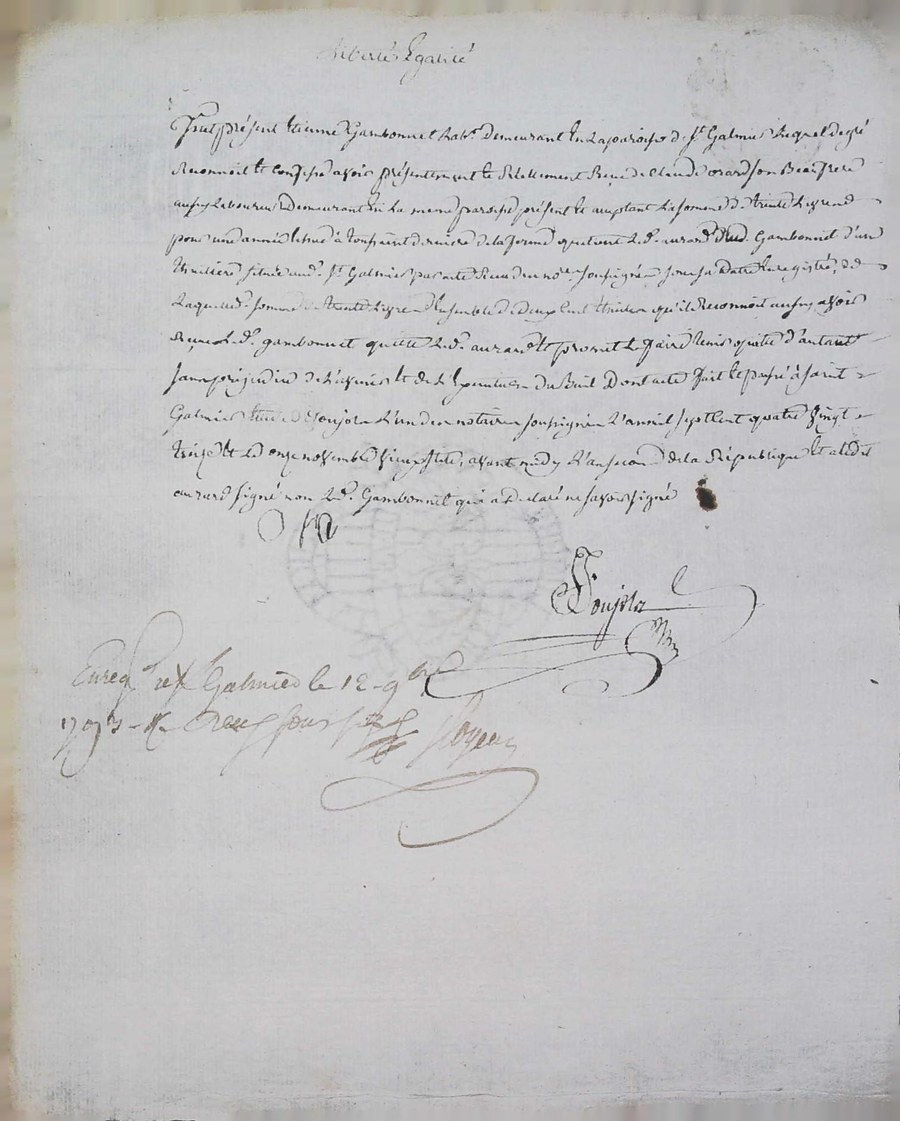 Liberté Égalité
fut présent Etienne Gambonnet hab.t demeurant en la paroisse de S.t Galmier lequel de gré
reconnoit et confesse avoir présentement et réellement reçu de Claude orard son Beau frere
aussy laboureur demeurant en la meme paroisse présent et acceptant la somme de trente livres
pour une année echue à toussaint derniere de la ferme qu'tient led. aurard dud. Gambonnet d'un
située aud. S.t Galmier par acte reçu du not.re soussigné sous sa date Enregistré, de
laquelle somme de trente livres Ensemble de deux cent trente qu'il reconnoit aussy avoir
reçue led. gambonnet quitte led. aurard et promet le faire tenir quitte d'autant
sans préjudice de et de l' du Bail dont acte fait et passé à saint
Galmier etude de Ponjola l'un des notaires soussignés l'an mil sept cent quatre vingt
treize et le onze novembre vieux stile, avant midy l'an second de la République et a led.
aurard signé non led. Gambonnet qui a déclaré ne savoir signé
Enreg. à S.t Galmier le 12 9bre
1793 Reçu